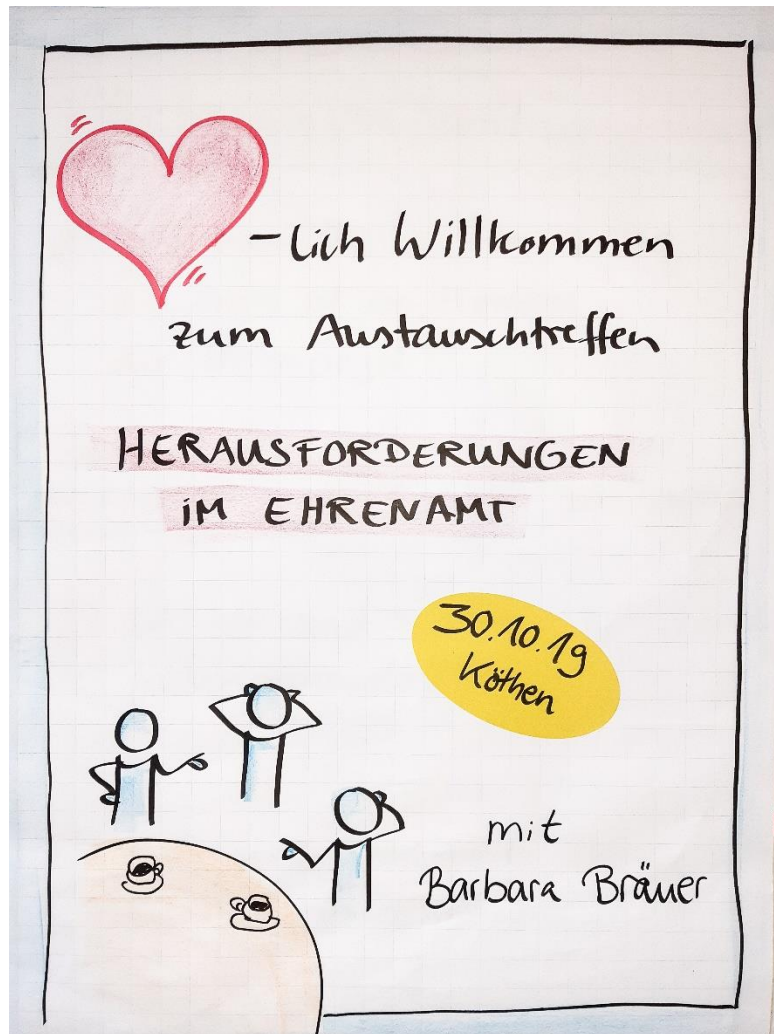 -lich Willkommen
zum Austauschtreffen
HERAUSFORDERUNGEN
IM EHRENAMT
30.10.19
Köthen
mit
Barbara Bräuer